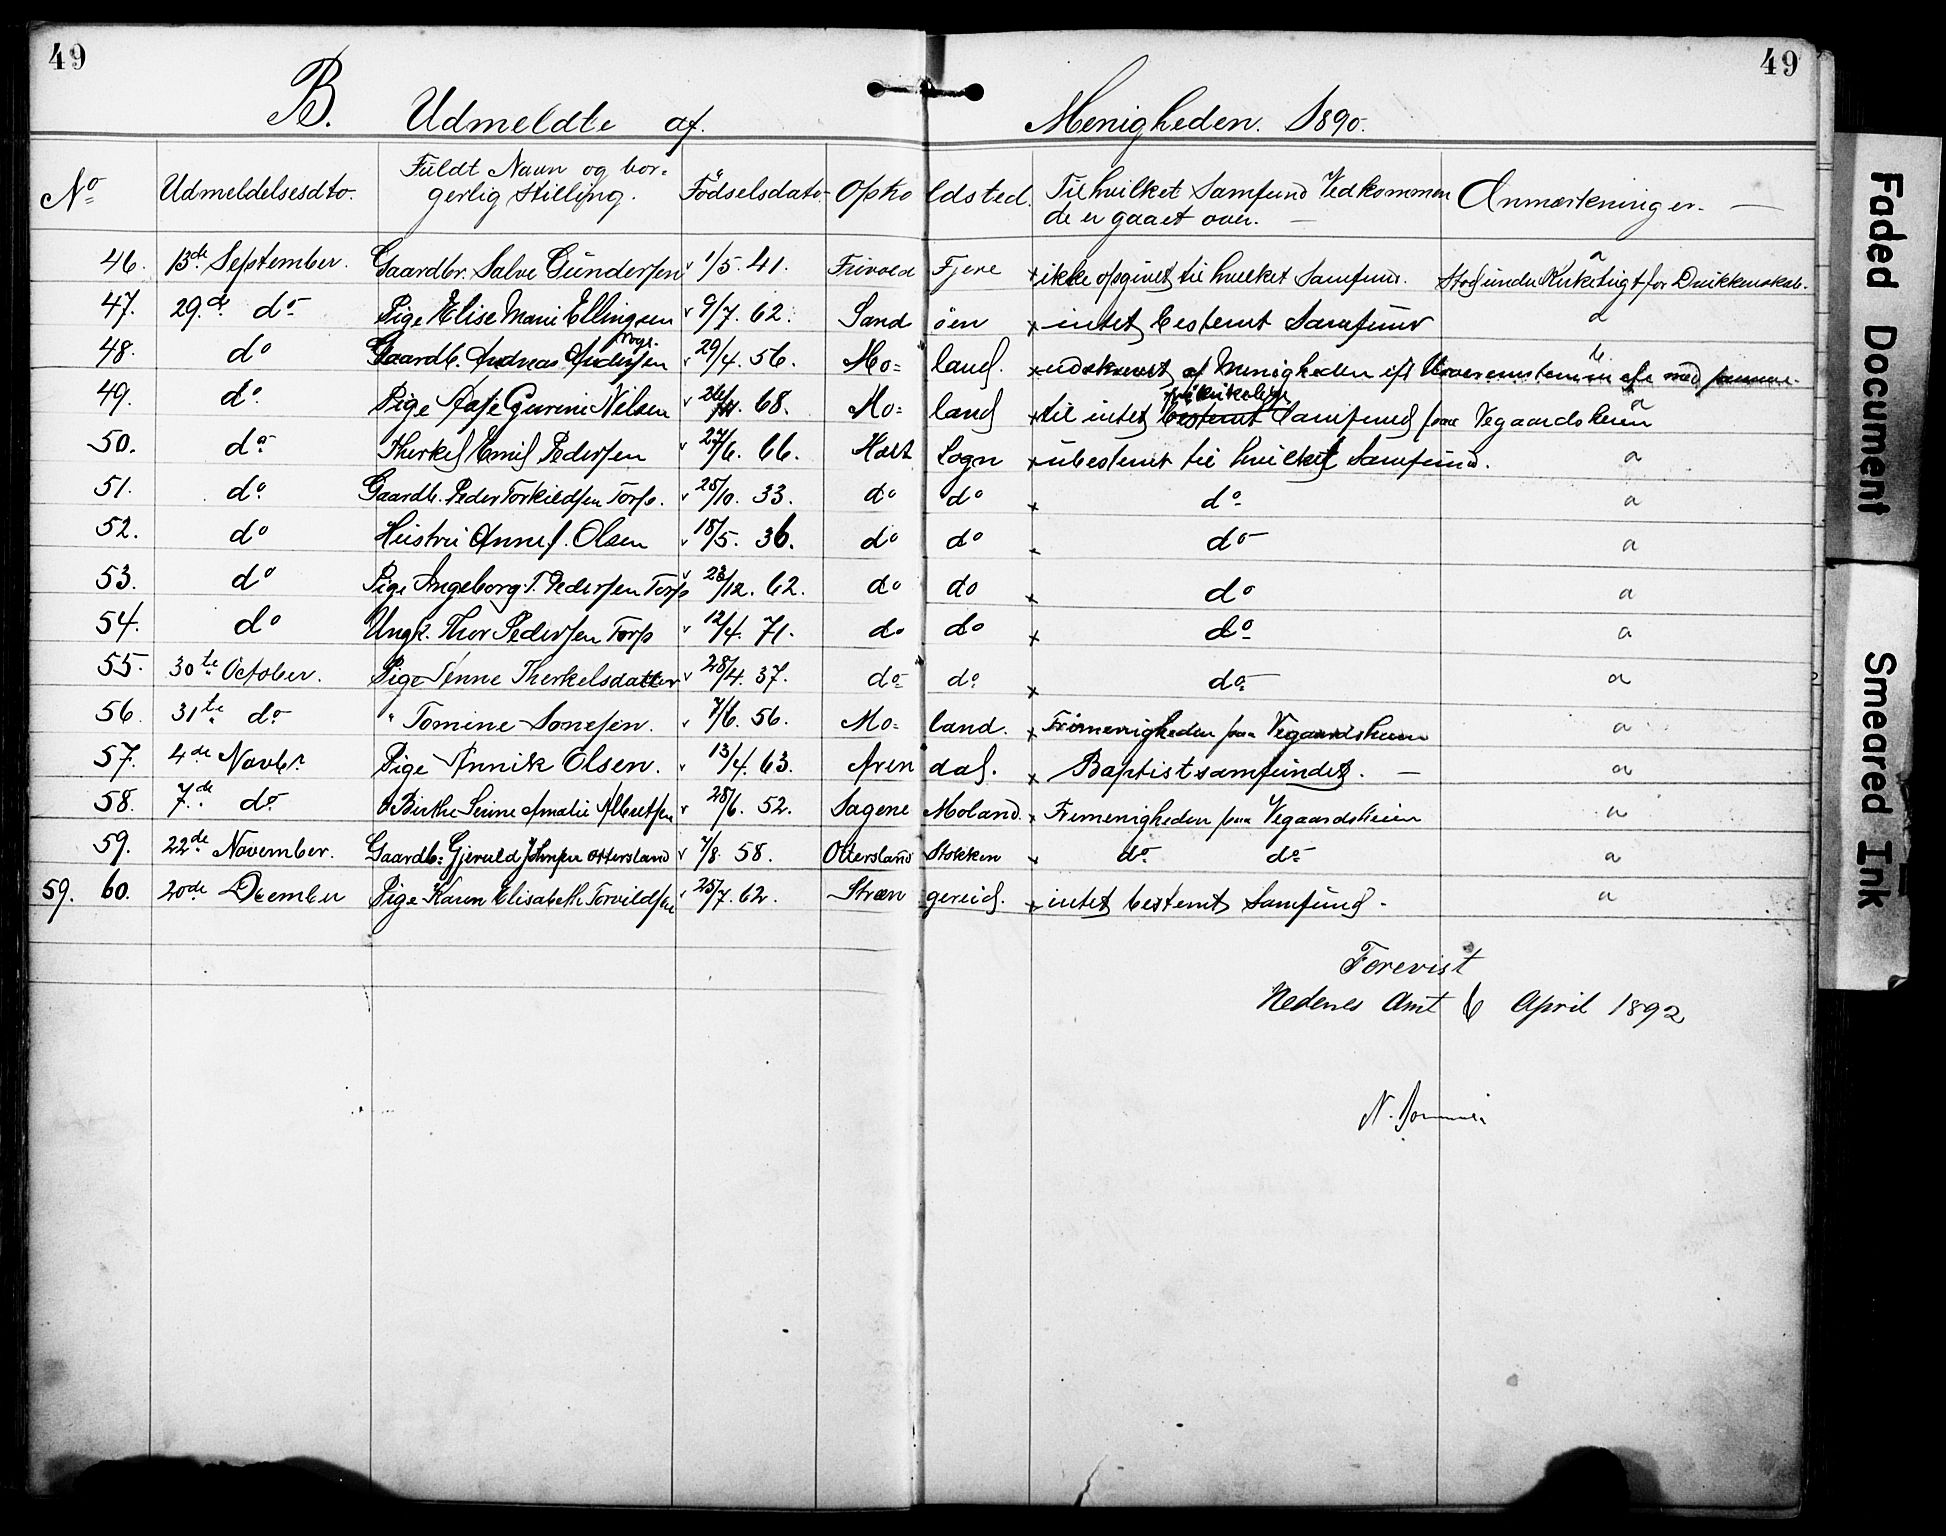 49
49
B. Udmeldte af Menigheden. 1890.
No Udmeldelsesdto. Fuldt Navn og bor= gerlig Stilling. Födselsdato Opholdsted. Til hvilket Samfund Vedkommende er gaaet over. — Anmærkninger. —
46. 13de September. Gaardbr. Salve Gundersen 1/5. 41. Fivold Fjere x ikke opgivet til hvilket Samfund. a Stod under Kirketugt for Drikkenskab.
47. 29de do Pige Elise Marie Ellingsen 9/7. 62. Sandöen x intet bestemt Samfund a
48. do Gaardb. Andreas Andersen 29/4. 56. Mo= land. x udskrevet af Menigheden eft Overensstemmelse med samme. b.
49. do Pige Aase Gurine Nilsen 26/ 68. Mo= land x til intet bestemt Samfund fraa Vegaardsheien a
50. do Therkel Emil Pedersen 27/6. 66. Holt Sogn x ubestemt til hvilket Samfund. a
51. do Gaardb. Peder Torkildsen Torp. 25/10. 33. do do x do a
52. do Hustru Anne J. Olsen 18/5. 36. do do do a
53. do Pige Ingeborg T. Pedersen Torp 23/12. 62. do do x do a
54. do Ungk. Thor Pedersen Torp 12/4. 71. do do x do a
55. 30te October. Pige Tenne Therkelsdatter 28/4. 37. do do x do a
56. 31te do " Tomine Sonesen. 7/6. 56. Mo= land. x Frimenigheden paa Vegaardsheien a
57. 4de Novbr. Pige Annik Olsen. 13/4. 63. Arendal. x Baptistsamfundet. — a
58. 7de do Birthe Serine Amalie Albertsen 28/6. 52. Sagene Moland. x Fremenigheden paa Vegaardsheien a
59. 22de November. Gaardb: Gjeruld Johnsen Ottersland 7/8. 58. Ottersland Stokken x do do a
59. 60. 20de December Pige Karen Elisabeth Torvildsen 25/7. 62. Strængereid. x intet bestemt Samfund. a
Forevist
Nedenes Amt 6 April 1892
N.
Faded Document
Smeared Ink